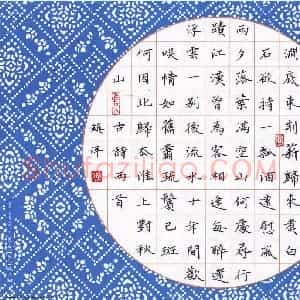 澗底束荊薪歸來煮白
石欲持一瓢酒遠慰風
雨夕落葉滿空山何處尋行
蹟江漢曾為客相逢每醉還
浮雲一別後流水十年間歡
笑情如舊蕭疏鬢已斑
何因北歸去淮上對秋
山
古詩兩首
shufaziliao.com